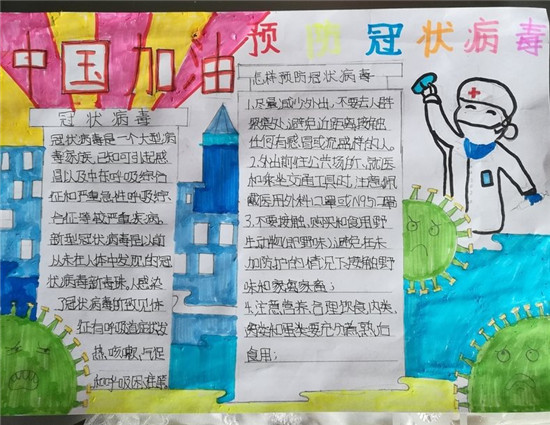 中国加油
预防冠状病毒
冠状病毒
冠状病毒是一个大型病
毒家族,已知可引起感
冒以及中东呼吸综合
征和严重急性呼吸综
合征等较严重疾病。
新型冠状病毒是以前
从未在人体中发现的冠
状病毒新毒株,人感染
了冠状病毒的常见体
征有呼吸道症状发
热、咳嗽、气促
和呼吸困难
怎样预防冠状病毒
1.尽量减少外出,不要去人群
聚集处,避免近距离接触
任何有感冒或流感样的人。
2.外出前往公共场所、就医
和乘坐交通工具时,注意佩
戴医用外科口罩或N95口罩
3.不要接触、购买和食用野
生动物(即野味),避免在未
加防护的情况下接触野
味和家禽家畜;
4.注意营养,合理饮食,肉类、
禽类和蛋类要充分煮熟后
食用;